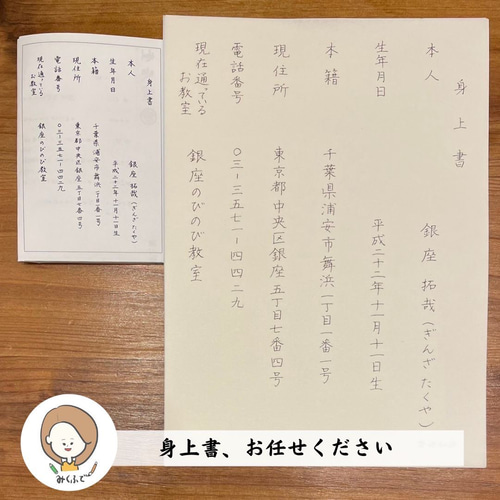 身上書
本人 銀座 拓哉（ぎんざ たくや）
生年月日 平成二十二年十一月十一日生
本籍 千葉県浦安市舞浜一丁目一番一号
現住所 東京都中央区銀座五丁目七番四号
電話番号 〇三ー三五七一ー四四二九
現在通っている
お教室 銀座のびのび教室
身上書
本人 銀座 拓哉（ぎんざ たくや）
生年月日 平成二十二年十一月十一日生
本籍 千葉県浦安市舞浜一丁目一番一号
現住所 東京都中央区銀座五丁目七番四号
電話番号 〇三ー三五七一ー四四二九
現在通っている
お教室 銀座のびのび教室
みくふで
身上書、お任せください